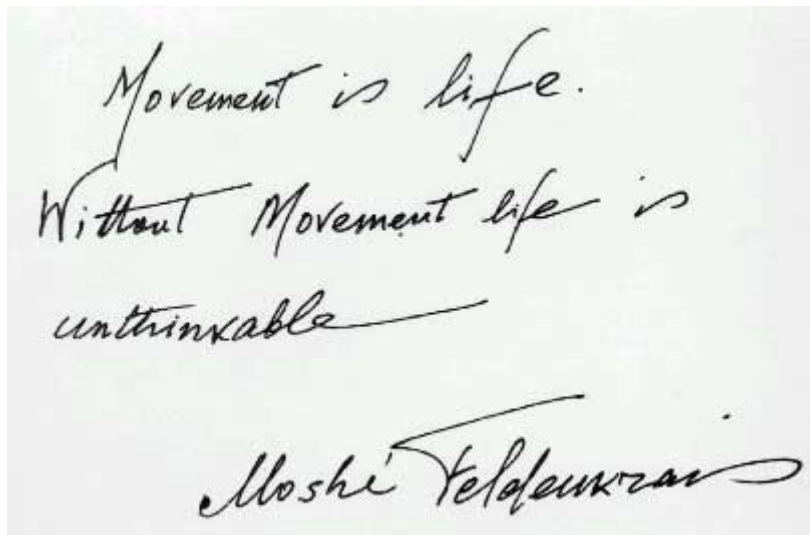 Movement is life.
Without Movement life is
unthinkable
Moshé Feldenkrais